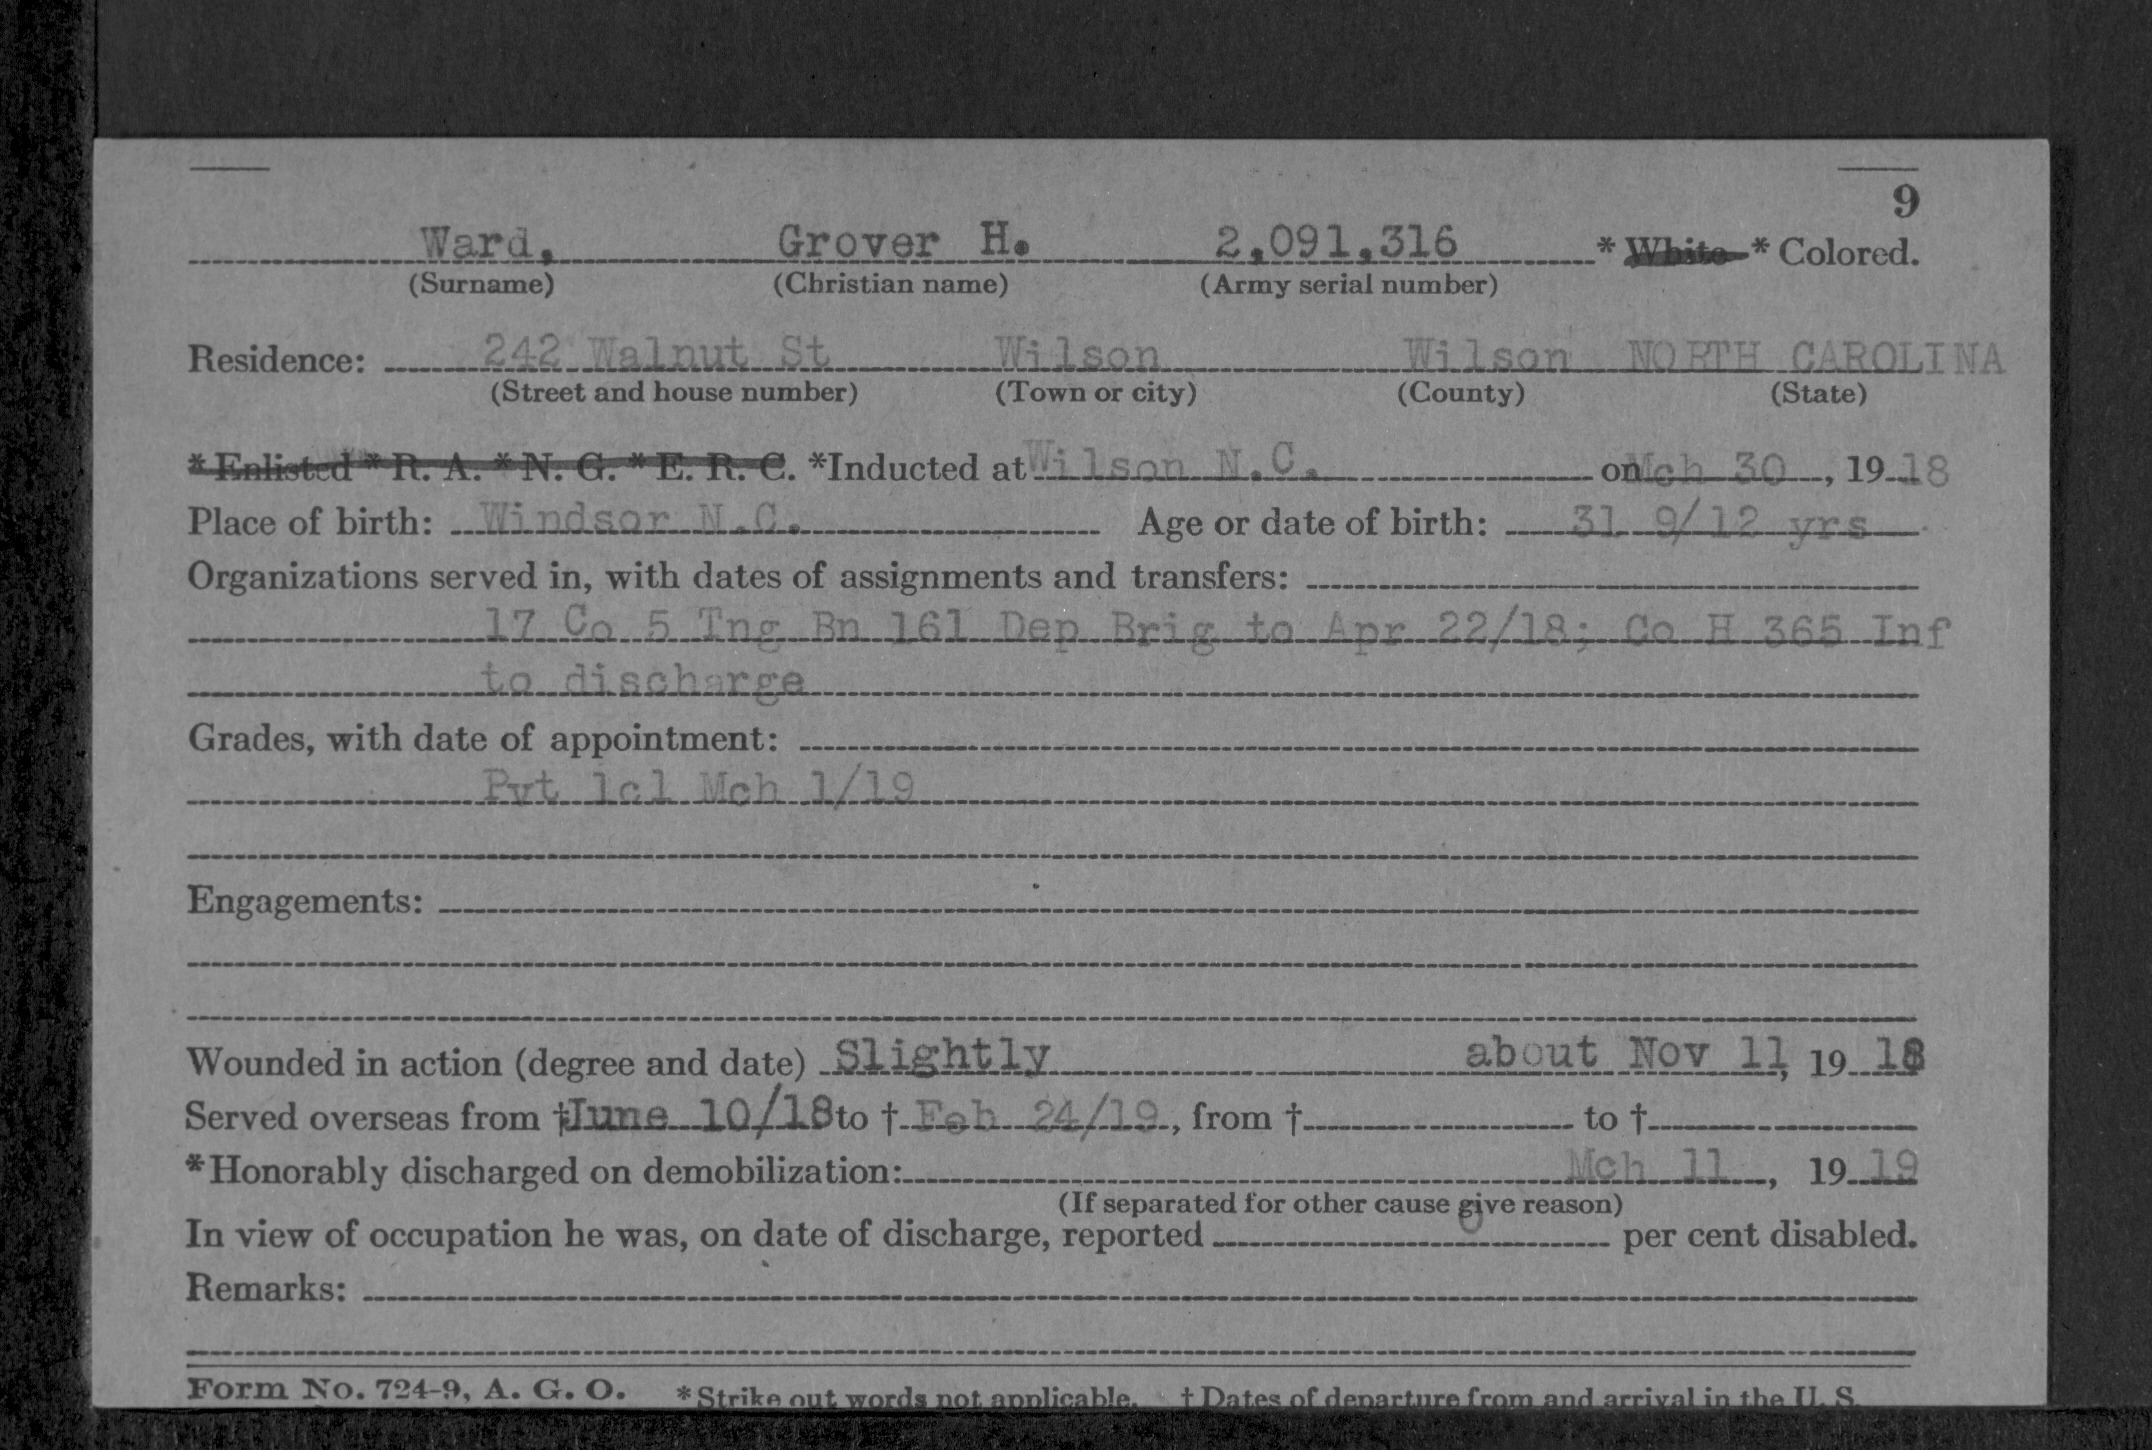 9
Ward, Grover H. 2,091,316 * White * Colored.
(Surname) (Christian name) (Army serial number)
Residence: 242 Walnut St Wilson Wilson NORTH CAROLINA
(Street and house number) (Town or city) (County) (State)
* Enlisted * R. A. * N. G. * E. R. C. *Inducted at Wilson N.C. on Mch 30, 1918
Place of birth: Windsor N.C. Age or date of birth: 31 9/12 yrs
Organizations served in, with dates of assignments and transfers:
17 Co 5 Tng Bn 161 Dep Brig to Apr 22/18; Co H 365 Inf
to discharge
Grades, with date of appointment:
Pvt 1cl Mch 1/19
Engagements:
Wounded in action (degree and date) Slightly about Nov 11, 1918
Served overseas from †June 10/18 to † Feb 24/19, from † to †
*Honorably discharged on demobilization: Mch 11, 1919
(If separated for other cause give reason)
In view of occupation he was, on date of discharge, reported 0 per cent disabled.
Remarks:
Form No. 724-9, A. G. O. *Strike out words not applicable. † Dates of departure from and arrival in the U. S.